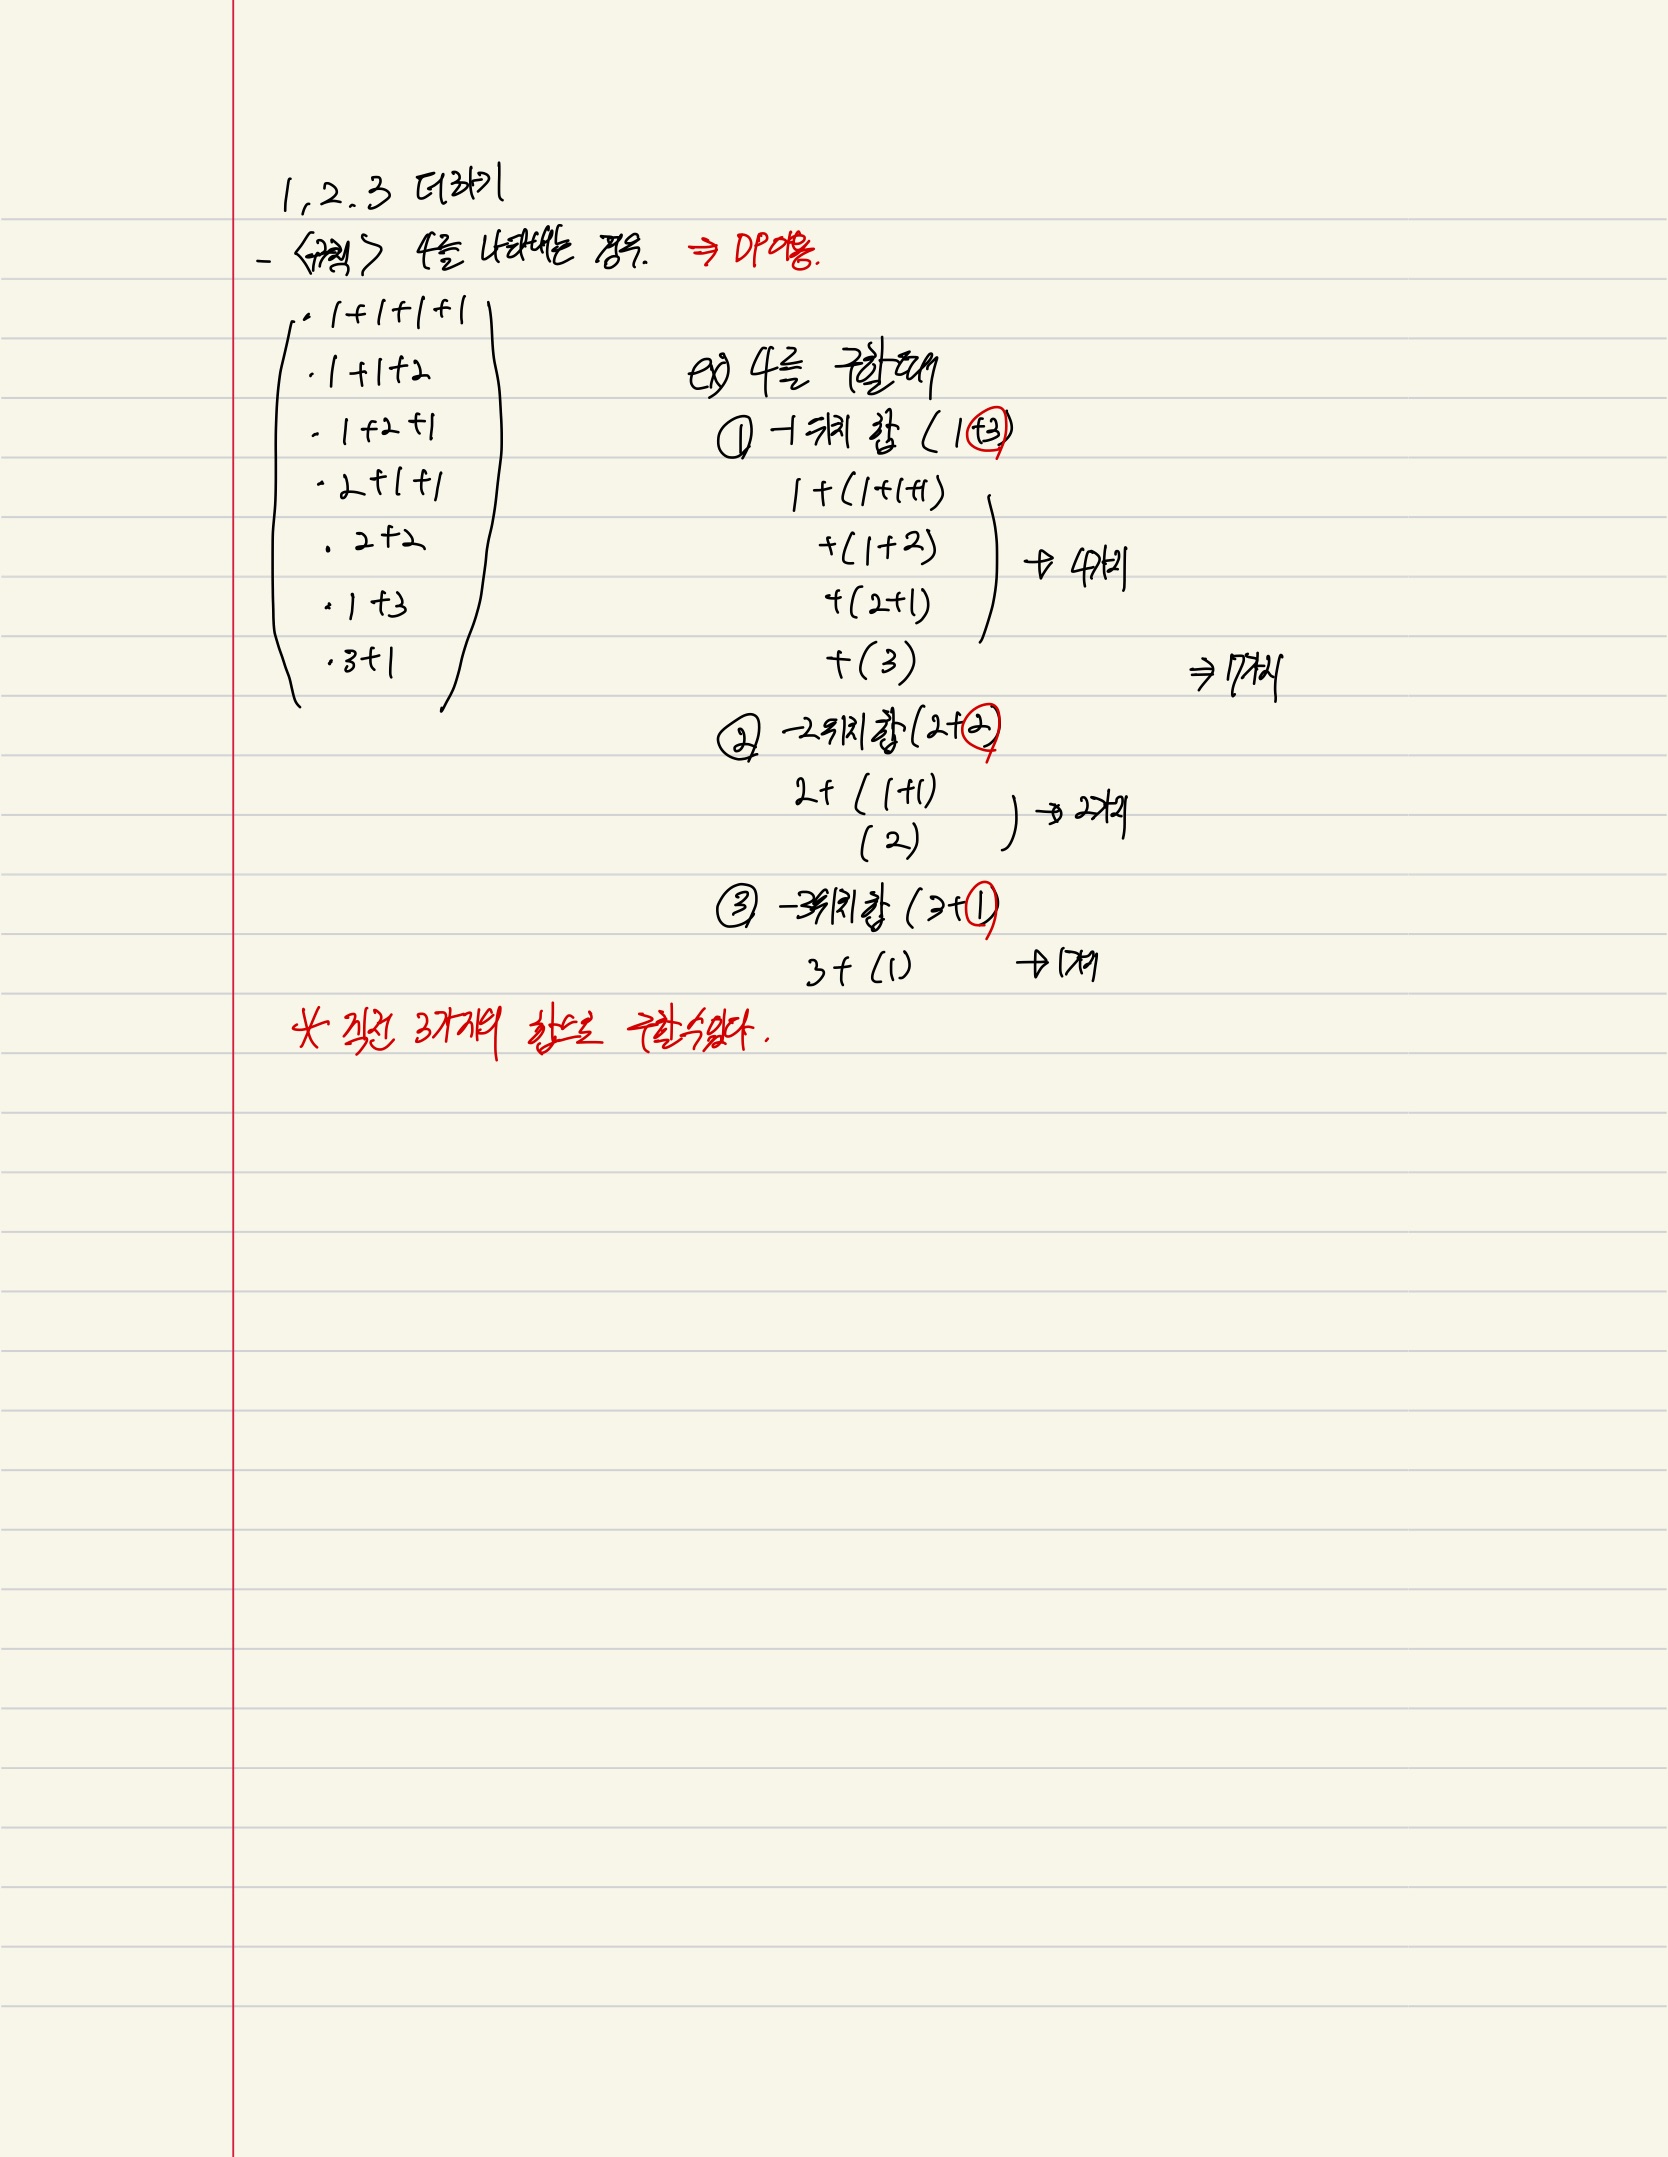 1, 2. 3 더하기
- <규칙> 4를 나타내는 경우. ⇒ DP이용.
· 1+1+1+1
· 1+1+2
· 1+2+1
· 2+1+1
· 2+2
· 1+3
· 3+1
ex) 4를 구할때
① -1 위치 합 (1+3)
1+(1+1+1)
+(1+2)
+(2+1)
+(3)
→ 4가지
② -2위치 합 (2+2)
2+ (1+1)
(2)
→ 2가지
③ -3위치 합 (3+1)
3+ (1) → 1가지
⇒ 7가지
* 직전 3가지의 합으로 구할수있다.